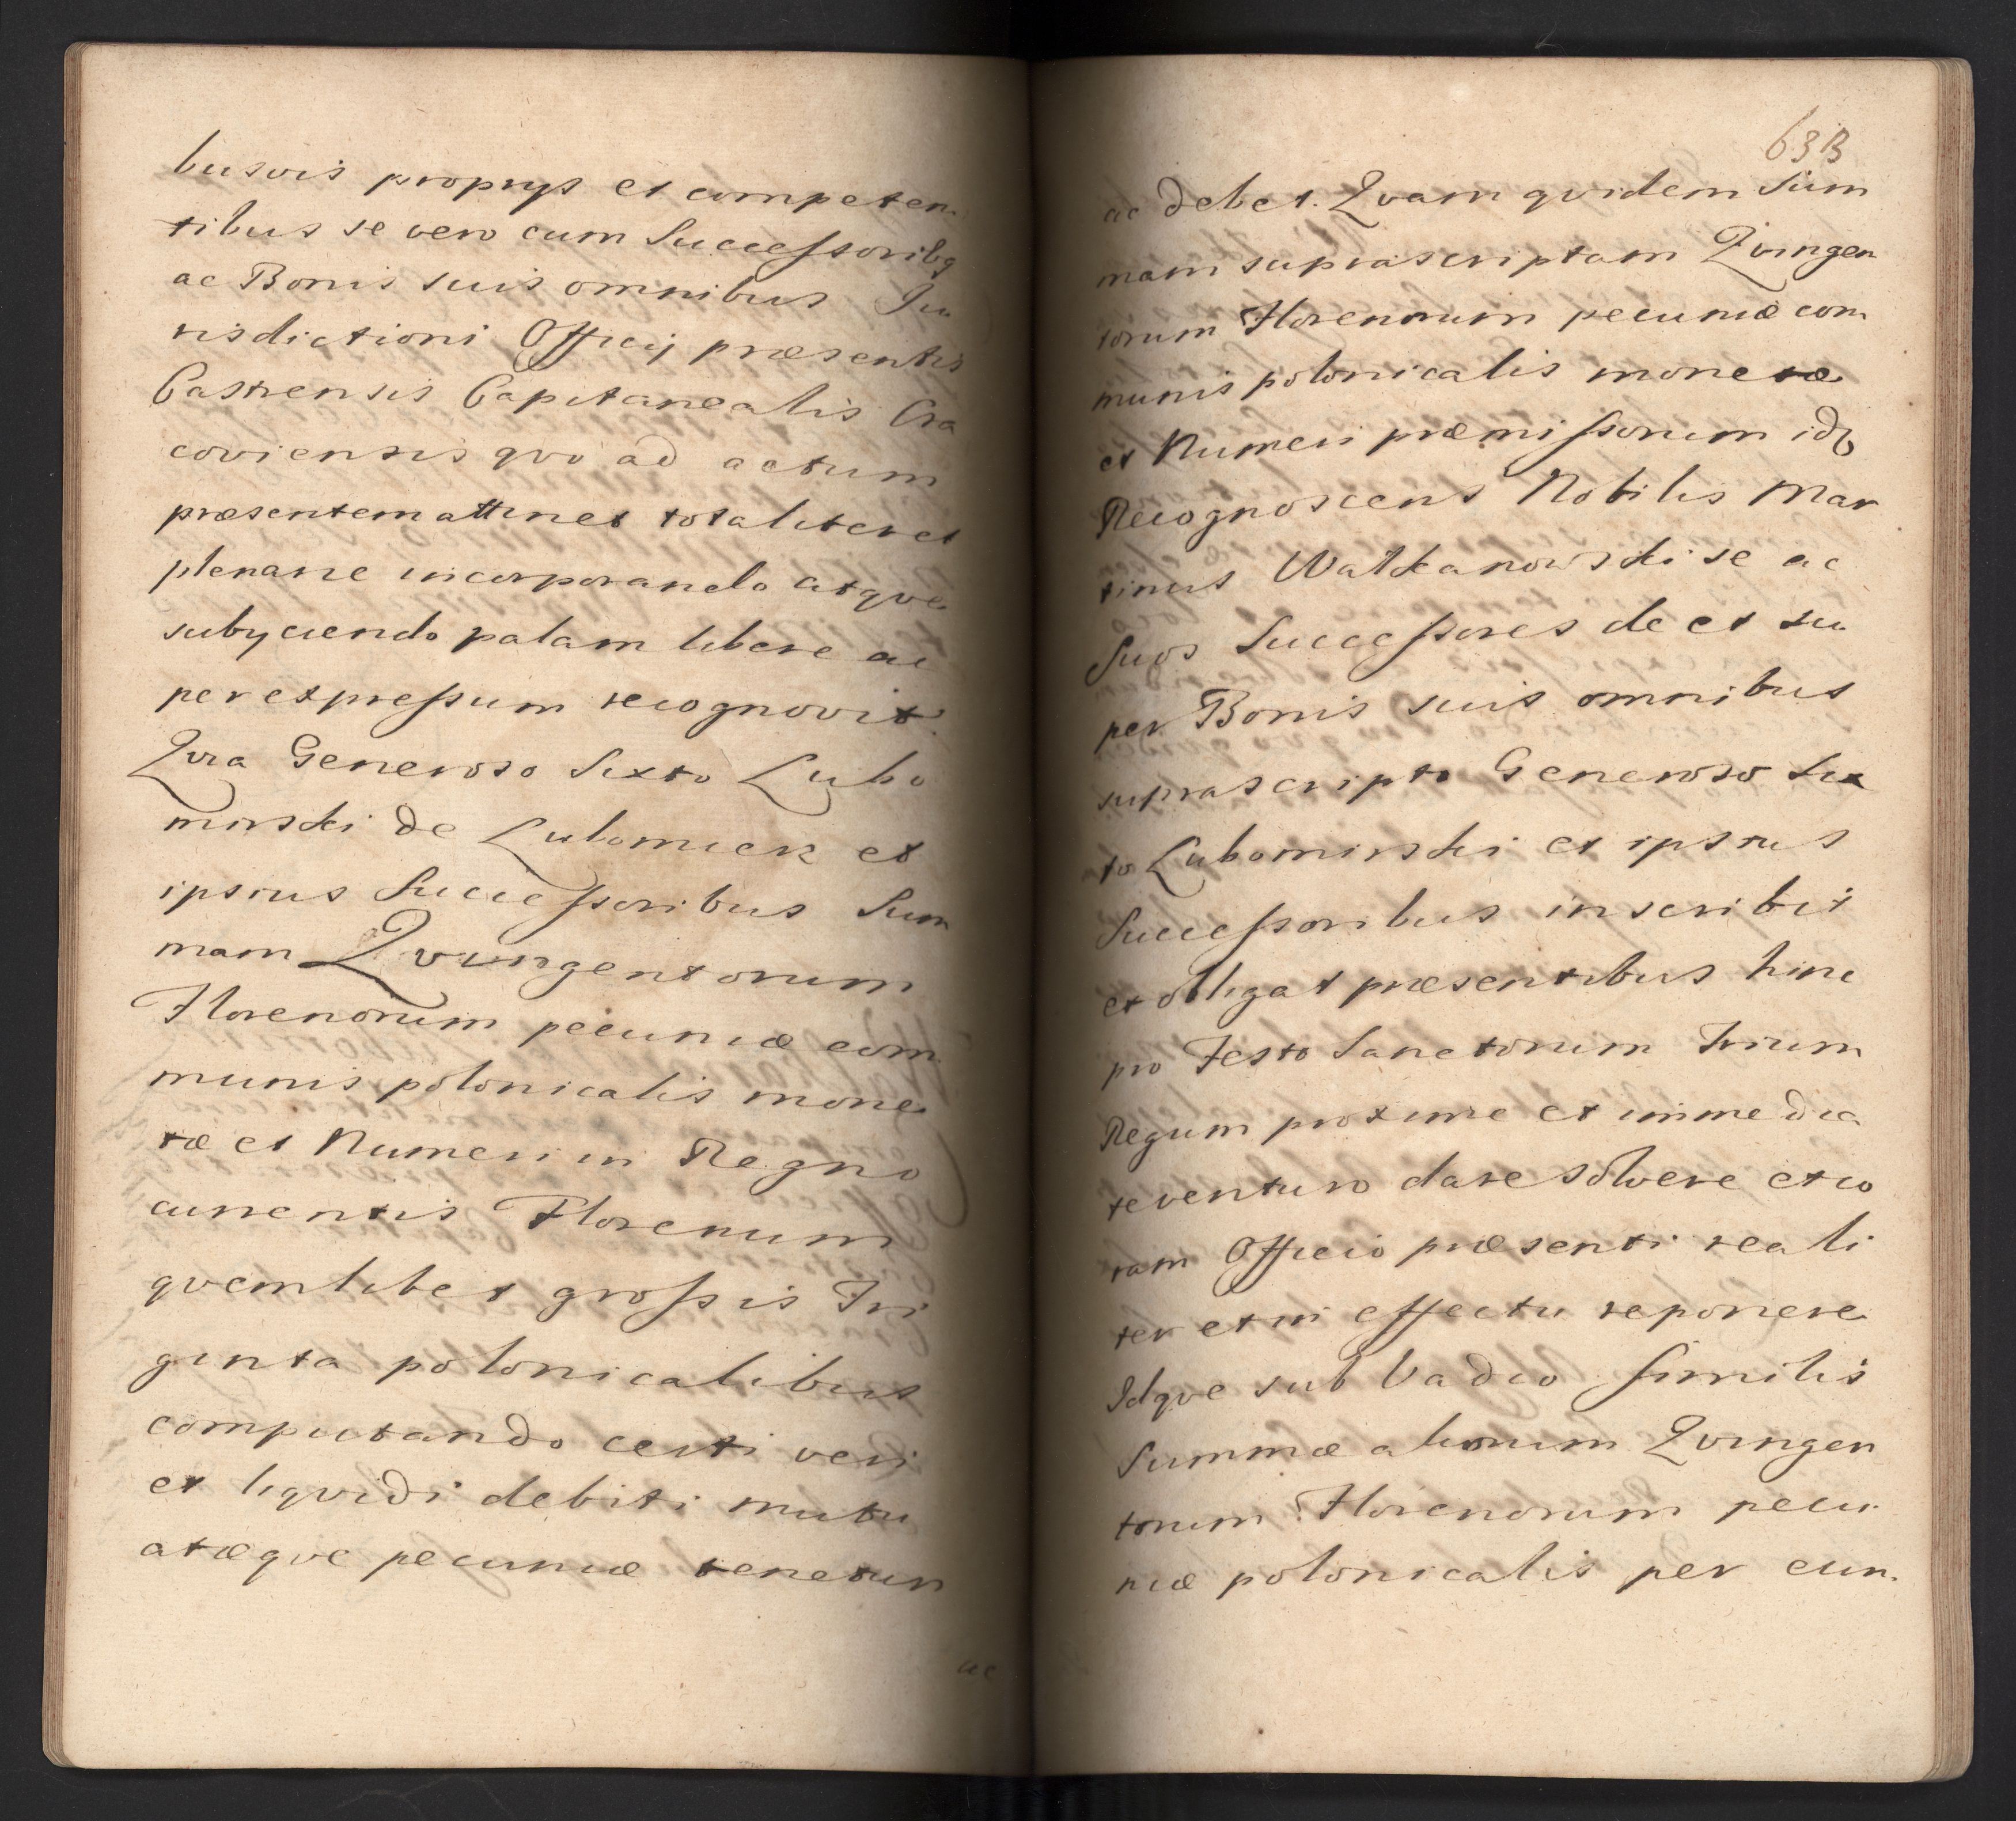 busvis proprijs et competen
tibus se vero cum Successoribq
ac Bonis suis omnibus Ju
risdictioni Officij præsentis
Castrensis Capitanealis Cra
coviensis qvo ad actum
præsentem attinet totaliter et
plenarie incorporando atqve
subijciendo palam libere ac
per expressum recognovit.
Qvia Generoso Sixto Lubo
mirski de Lubomierz et
ipsius Successoribus Sum
mam Qvingentorum
Florenorum pecuniæ com
munis polonicalis mone
tæ et Numeri in Regno
currentis Florenum
qvemlibet grossis Tri
ginta polonicalibus
computando certi veri
et liqvidi debiti mutu
atæqve pecuniæ tenetur
ac
633
ac debet. Qvam qvidem Sum
mam suprascriptam Qvingen
torum Florenorum pecuniæ com
munis polonicalis monetæ
et Numeri præmissorum idq
Recognoscens Nobilis Mar
tinus Walkanowski se ac
Suos Successores de et su
per Bonis suis omnibus
suprascripto Generoso Six
to Lubomirski et ipsius
Successoribus inscribit
et obligat præsentibus hinc
pro Festo Sanctorum Trium
Regum proxime et immedia
te venturo dare solvere et co
ram Officio præsenti reali
ter et in effectu reponere
Idqve sub Vadio similis
Summæ aliorum Qvingen
torum Florenorum pecu
niæ polonicalis per eun